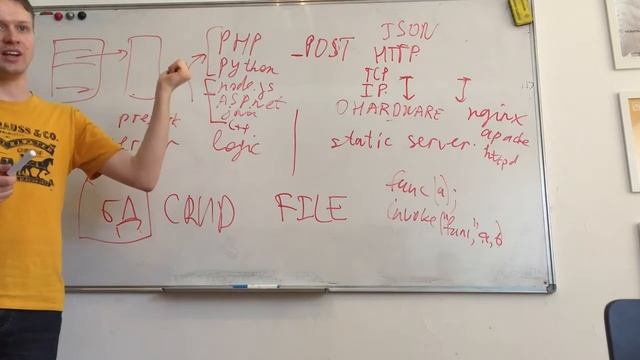 PHP
Python
node.js
ASP.net
Java
C++
logic
_POST
JSON
HTTP
TCP
IP
0 HARDWARE
static server.
nginx
apache
httpd
БД
CRUD
FILE
func(a);
invoke("func", a, b